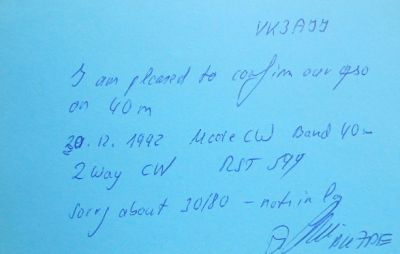 VK3AJJ
I am pleased to confirm our qso
on 40 m
30.12.1992 Mode CW Band 40m
2 way CW RST 599
Sorry about 30/80 - not in log